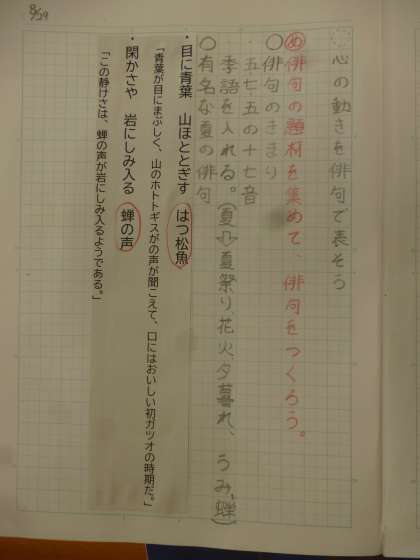 8/29
心の動きを俳句で表そう
め 俳句の題材を集めて、俳句をつくろう。
○俳句のきまり
・五七五の十七音
・季語を入れる。(夏⇨夏祭り、花火、夕暮れ、うみ、蝉)
○有名な夏の俳句
・目に青葉 山ほととぎす はつ松魚
「青葉が目にまぶしく、山のホトトギスがの声が聞こえて、口にはおいしい初ガツオの時期だ。」
・閑かさや 岩にしみ入る 蝉の声
「この静けさは、蝉の声が岩にしみ入るようである。」